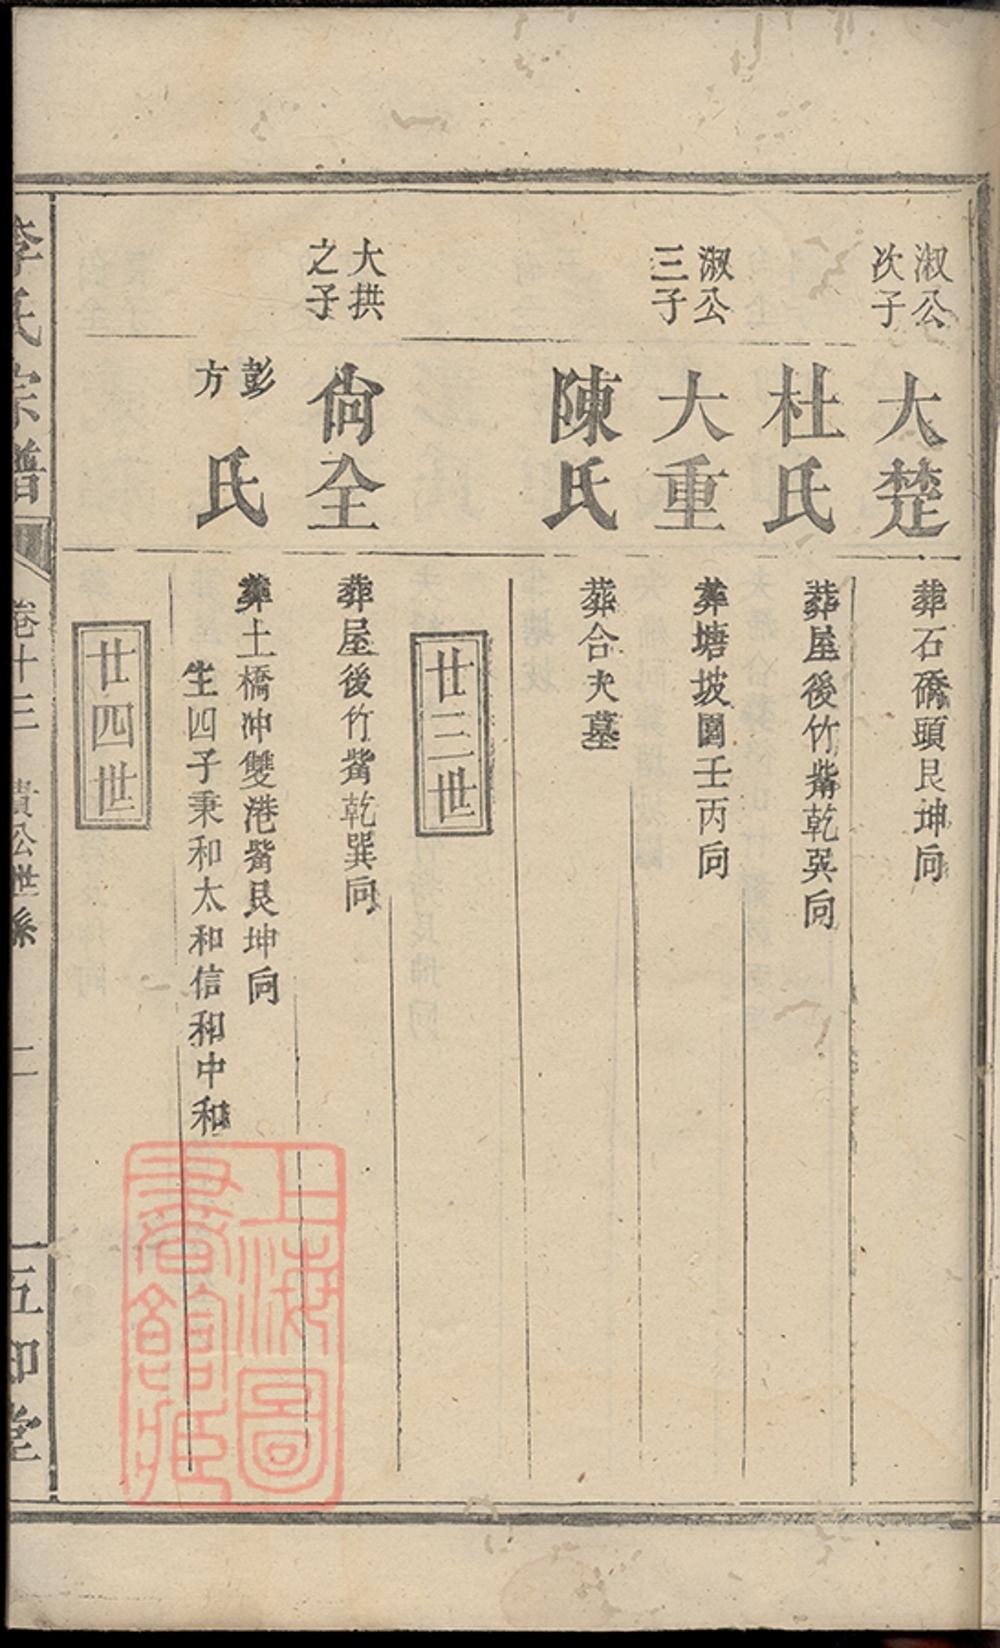 淑公
次子
大楚
葬石磽頭艮坤向
杜氏
葬屋後竹觜乾巽向
淑公
三子
大重
葬塘坡園壬丙向
陳氏
葬合夫墓
廿三世
大拱
之子
尙全
葬屋後竹觜乾巽向
彭
方
氏
葬土橋冲雙港觜艮坤向
生四子秉和太和信和中和
廿四世
李氏宗譜
卷十三
貴公世系
二
五知堂
上海圖
書館藏